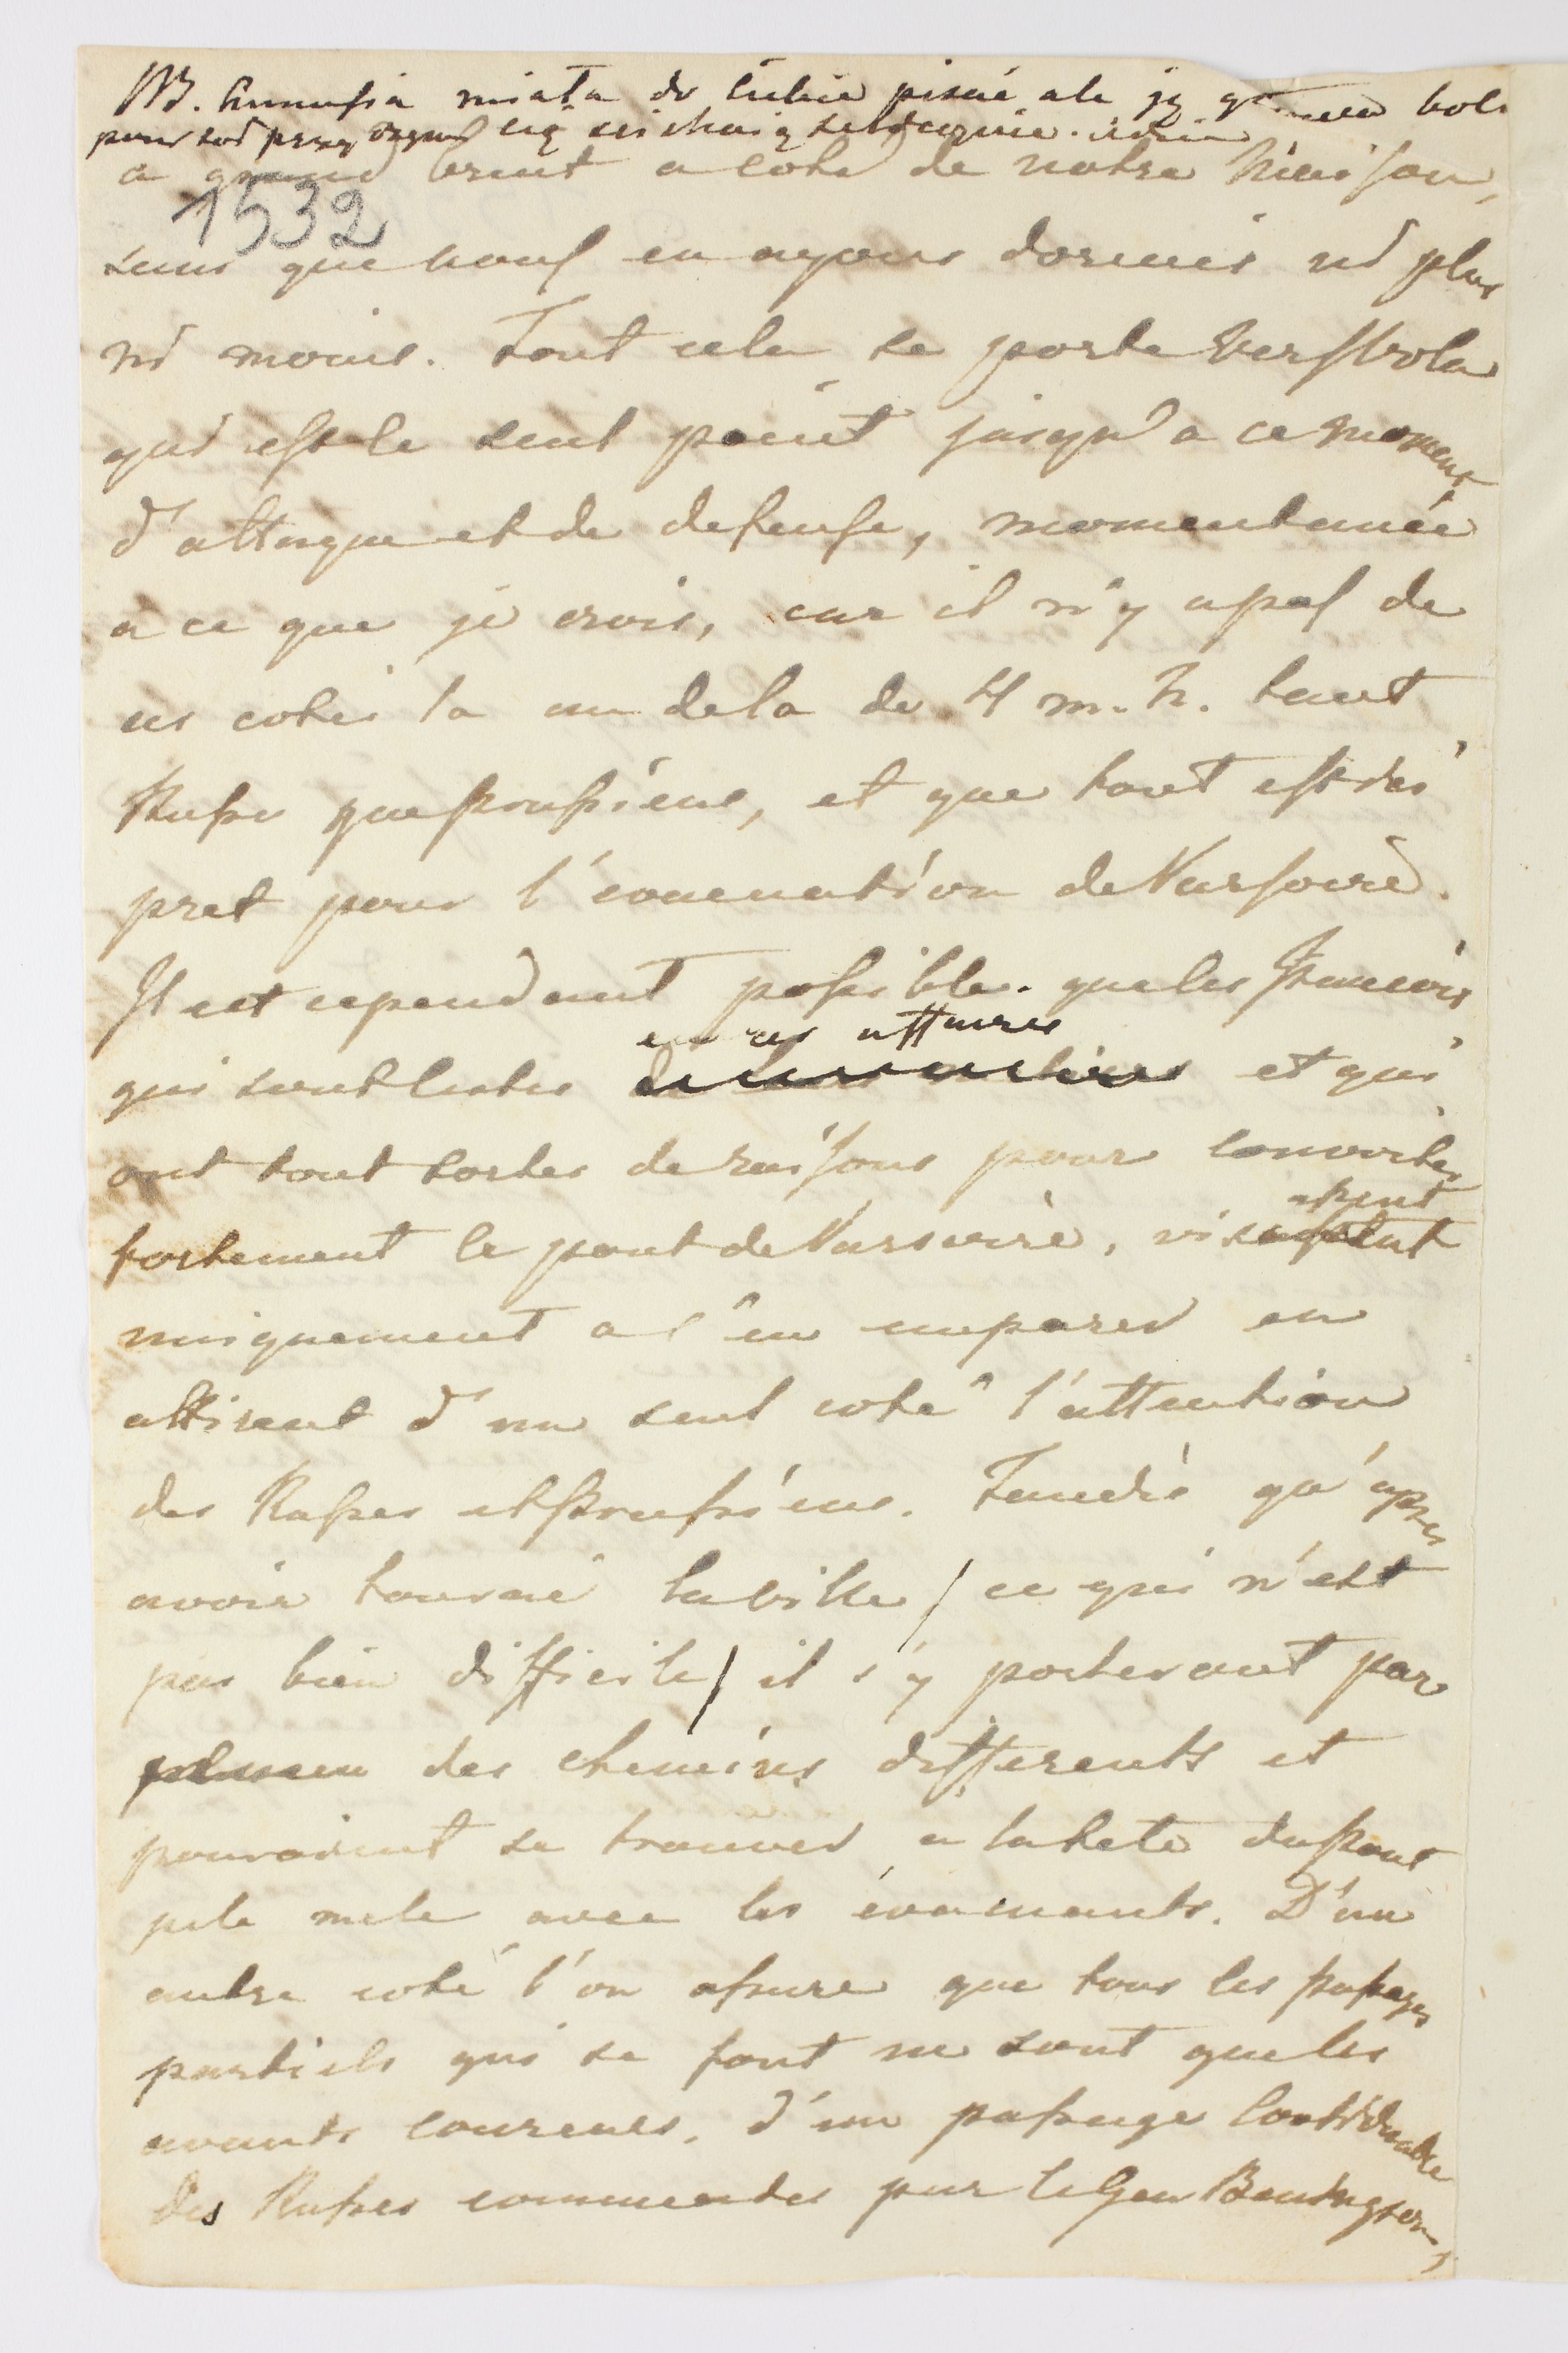 NB. Anusia miała do Ciebie pisać ale ją głowa boli
a grand bruit a coté de notre Maison,
1532
sans que nous en ayons dormis ni plus
ni moins. Tout cela se porte vers Wola
qui est le seul point jusqu'a ce moment
d'attaque et de defense, momentanée
a ce que je crois, car il n'y a pas de
ces cotés la au dela de 4 m. h. tant
Russes que Prussiens, et que tout est dei
pret pour l'évacuation de Varsovie.
Il est cependant possible que les Francois
en ces affaires
qui sont lestes et qui
ont tout sortes de raisons pour convoiter
fortement le pont de Varsovie, visassent
uniquement a s'en emparer en
attirent d'un seul coté l'attention
des Russes et Prussiens. Tandis qu'apres
avoir tourné la ville / ce qui n'est
pas bien difficile / il s'y porteront par
des chemins differents et
pouroient se trouver a la tete du Pont
pele mele avec les évacuants. D'un
autre coté l'on assure que tous les passages
partiels qui se font ne sont que les
avants coureurs, d'un passage considerable
des Russes commandes par le Gen Beningsen,